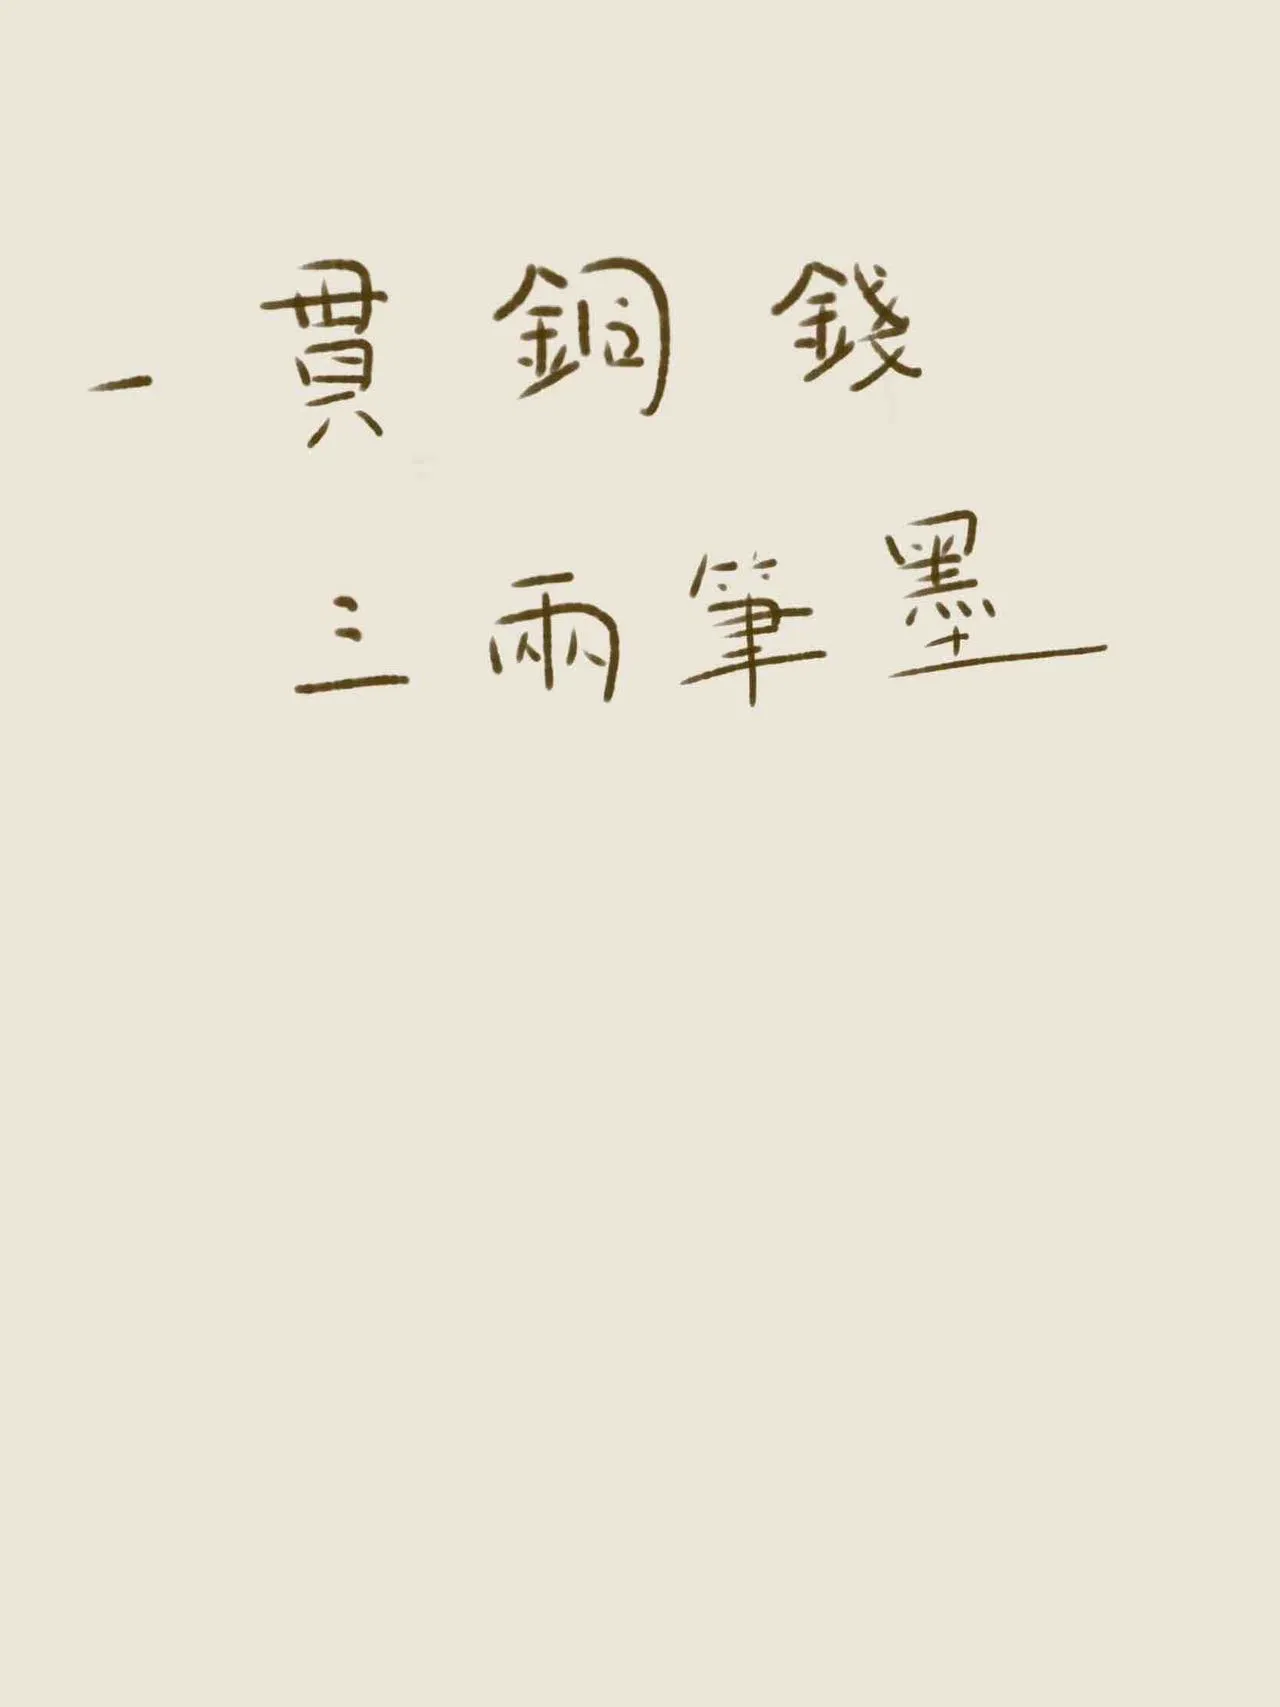 一貫銅錢
三兩筆墨